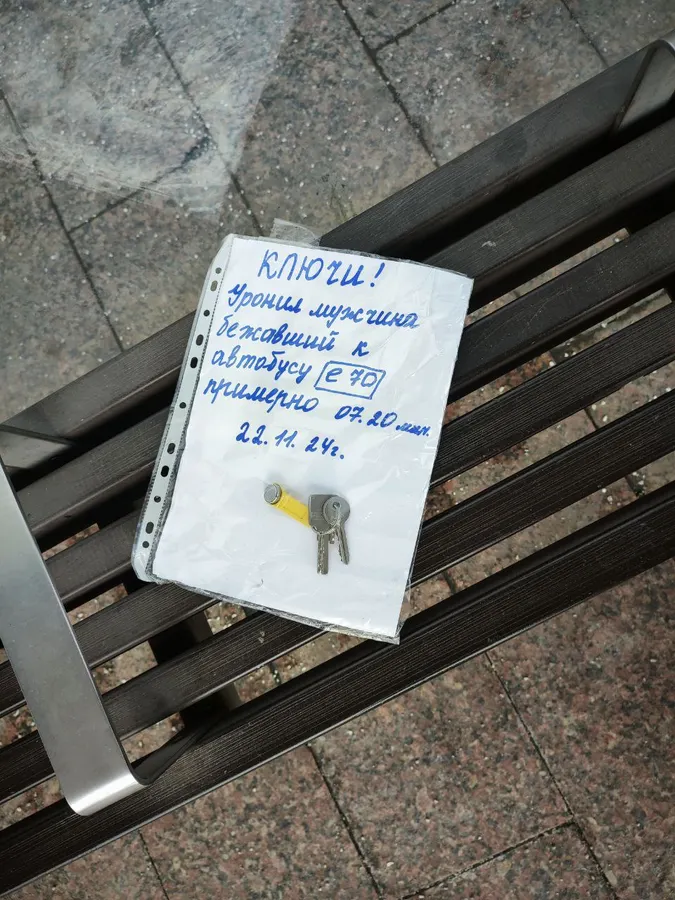 КЛЮЧИ!
Уронил мужчина
бежавший к
автобусу е 70
примерно 07.20 мин.
22.11.24г.